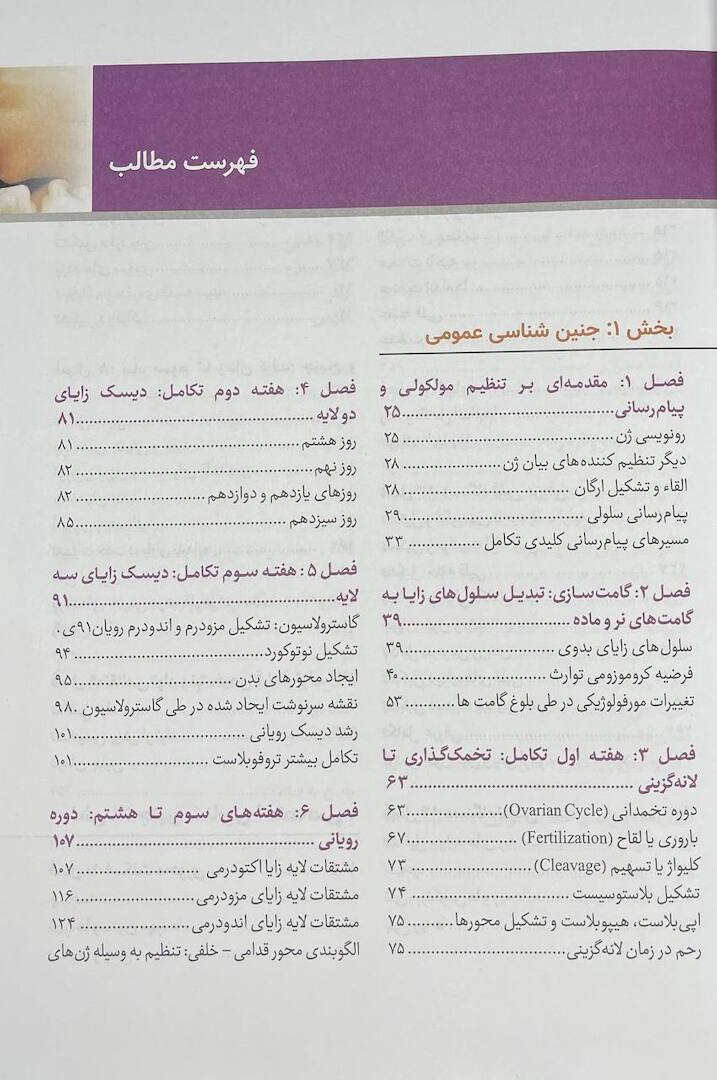 فهرست مطالب
بخش ۱: جنین شناسی عمومی
فصل ۱: مقدمه‌ای بر تنظیم مولکولی و
پیام‌رسانی ........ ۲۵
رونویسی ژن ........ ۲۵
دیگر تنظیم کننده‌های بیان ژن ........ ۲۸
القاء و تشکیل ارگان ........ ۲۸
پیام‌رسانی سلولی ........ ۲۹
مسیرهای پیام‌رسانی کلیدی تکامل ........ ۳۳
فصل ۲: گامت‌سازی: تبدیل سلول‌های زایا به
گامت‌های نر و ماده ........ ۳۹
سلول‌های زایای بدوی ........ ۳۹
فرضیه کروموزومی توارث ........ ۴۰
تغییرات مورفولوژیکی در طی بلوغ گامت ها ........ ۵۳
فصل ۳: هفته اول تکامل: تخمک‌گذاری تا
لانه‌گزینی ........ ۶۳
دوره تخمدانی (Ovarian Cycle) ........ ۶۳
باروری یا لقاح (Fertilization) ........ ۶۷
کلیواژ یا تسهیم (Cleavage) ........ ۷۳
تشکیل بلاستوسیست ........ ۷۴
اپی‌بلاست، هیپوبلاست و تشکیل محورها ........ ۷۵
رحم در زمان لانه‌گزینی ........ ۷۵
فصل ۴: هفته دوم تکامل: دیسک زایای
دو لایه ........ ۸۱
روز هشتم ........ ۸۱
روز نهم ........ ۸۲
روزهای یازدهم و دوازدهم ........ ۸۲
روز سیزدهم ........ ۸۵
فصل ۵: هفته سوم تکامل: دیسک زایای سه
لایه ........ ۹۱
گاسترولاسیون: تشکیل مزودرم و اندودرم رویان۹۱ی.
تشکیل نوتوکورد ........ ۹۴
ایجاد محورهای بدن ........ ۹۵
نقشه سرنوشت ایجاد شده در طی گاسترولاسیون . ۹۸
رشد دیسک رویانی ........ ۱۰۱
تکامل بیشتر تروفوبلاست ........ ۱۰۱
فصل ۶: هفته‌های سوم تا هشتم: دوره
رویانی ........ ۱۰۷
مشتقات لایه زایا اکتودرمی ........ ۱۰۷
مشتقات لایه زایای مزودرمی ........ ۱۱۶
مشتقات لایه زایای اندودرمی ........ ۱۲۴
الگوبندی محور قدامی – خلفی: تنظیم به وسیله ژن‌های